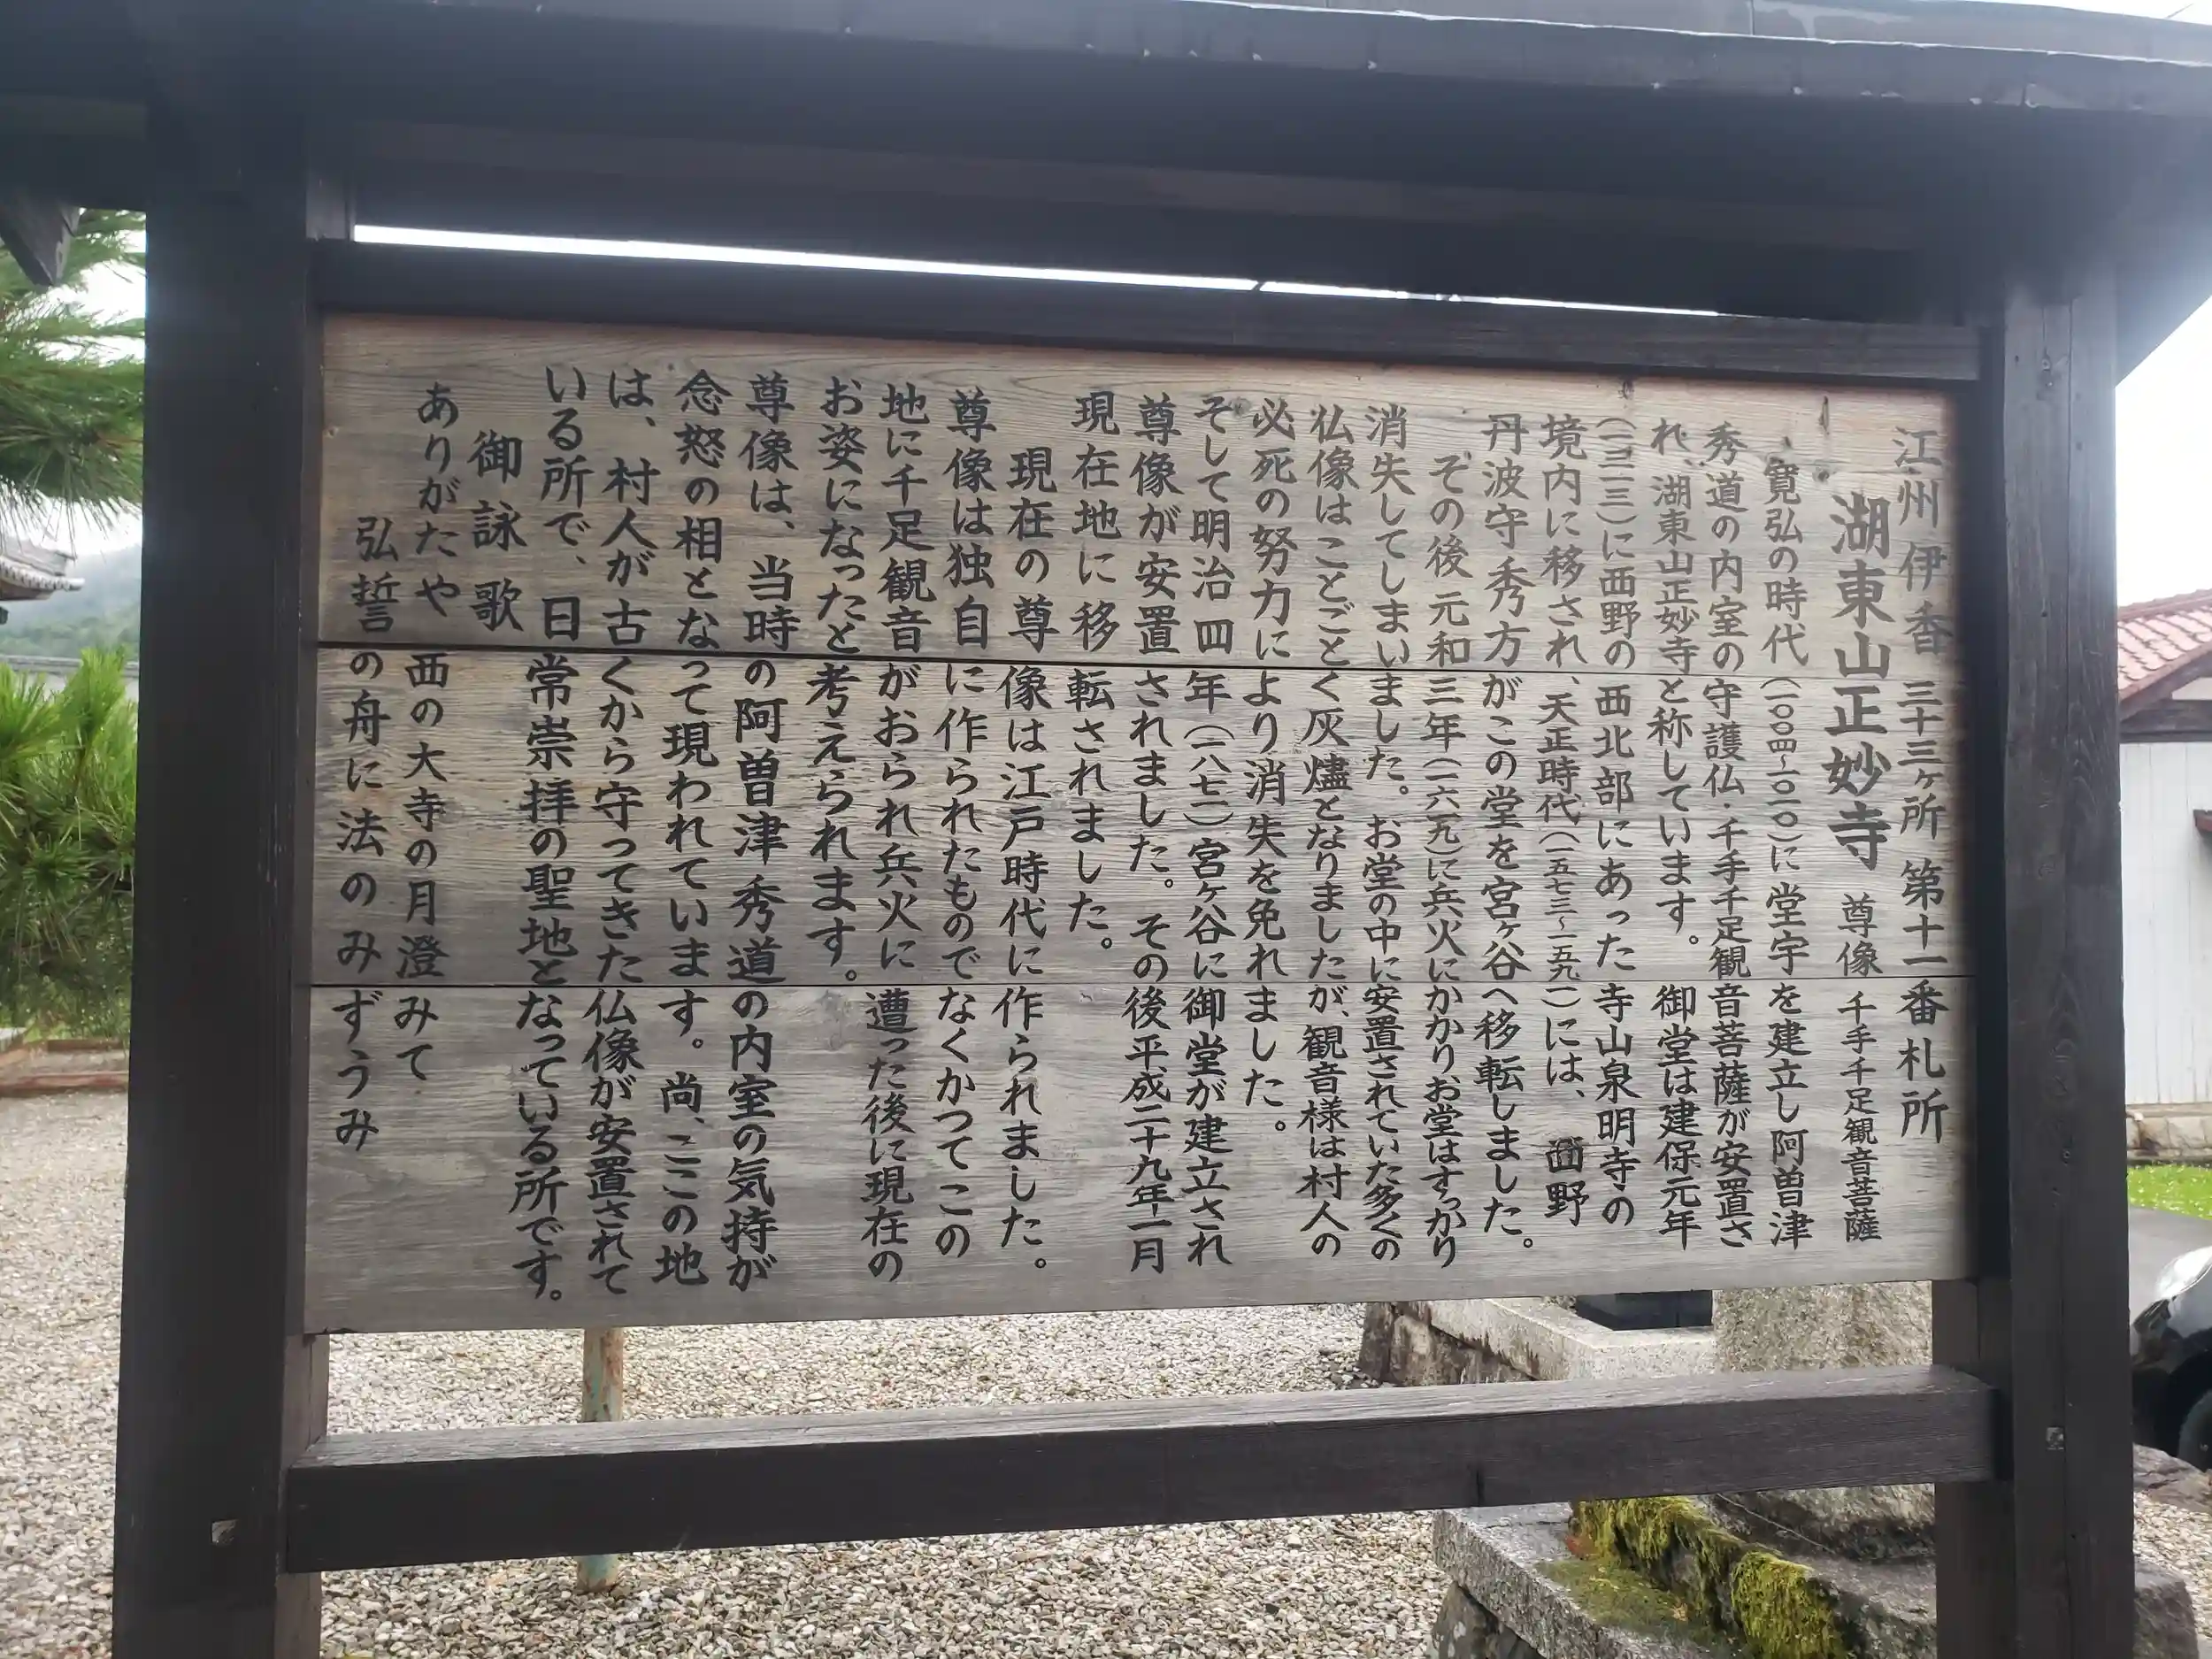 江州伊香三十三ヶ所第十一番札所
湖東山正妙寺 尊像 千手千足観音菩薩
寛弘の時代(一〇〇四~一〇一〇)に堂宇を建立し阿曽津
秀道の内室の守護仏・千手千足観音菩薩が安置さ
れ、湖東山正妙寺と称しています。御堂は建保元年
(一二一三)に西野の西北部にあった寺山泉明寺の
境内に移され、天正時代(一五七三~一五九一)には、西野
丹波守秀方がこの堂を宮ヶ谷へ移転しました。
その後元和三年(一六一九)に兵火にかかりお堂はすっかり
消失してしまいました。お堂の中に安置されていた多くの
仏像はことごとく灰燼となりましたが、観音様は村人の
必死の努力により消失を免れました。
そして明治四年(一八七一)宮ヶ谷に御堂が建立され
尊像が安置されました。その後平成二十九年一月
現在地に移転されました。
現在の尊像は江戸時代に作られました。
尊像は独自に作られたものでなくかつてこの
地に千足観音がおられ兵火に遭った後に現在の
お姿になったと考えられます。
尊像は、当時の阿曽津秀道の内室の気持が
念怒の相となって現われています。尚、ここの地
は、村人が古くから守ってきた仏像が安置されて
いる所で、日常崇拝の聖地となっている所です。
御詠歌
ありがたや 西の大寺の月澄みて
弘誓の舟に法のみずうみ